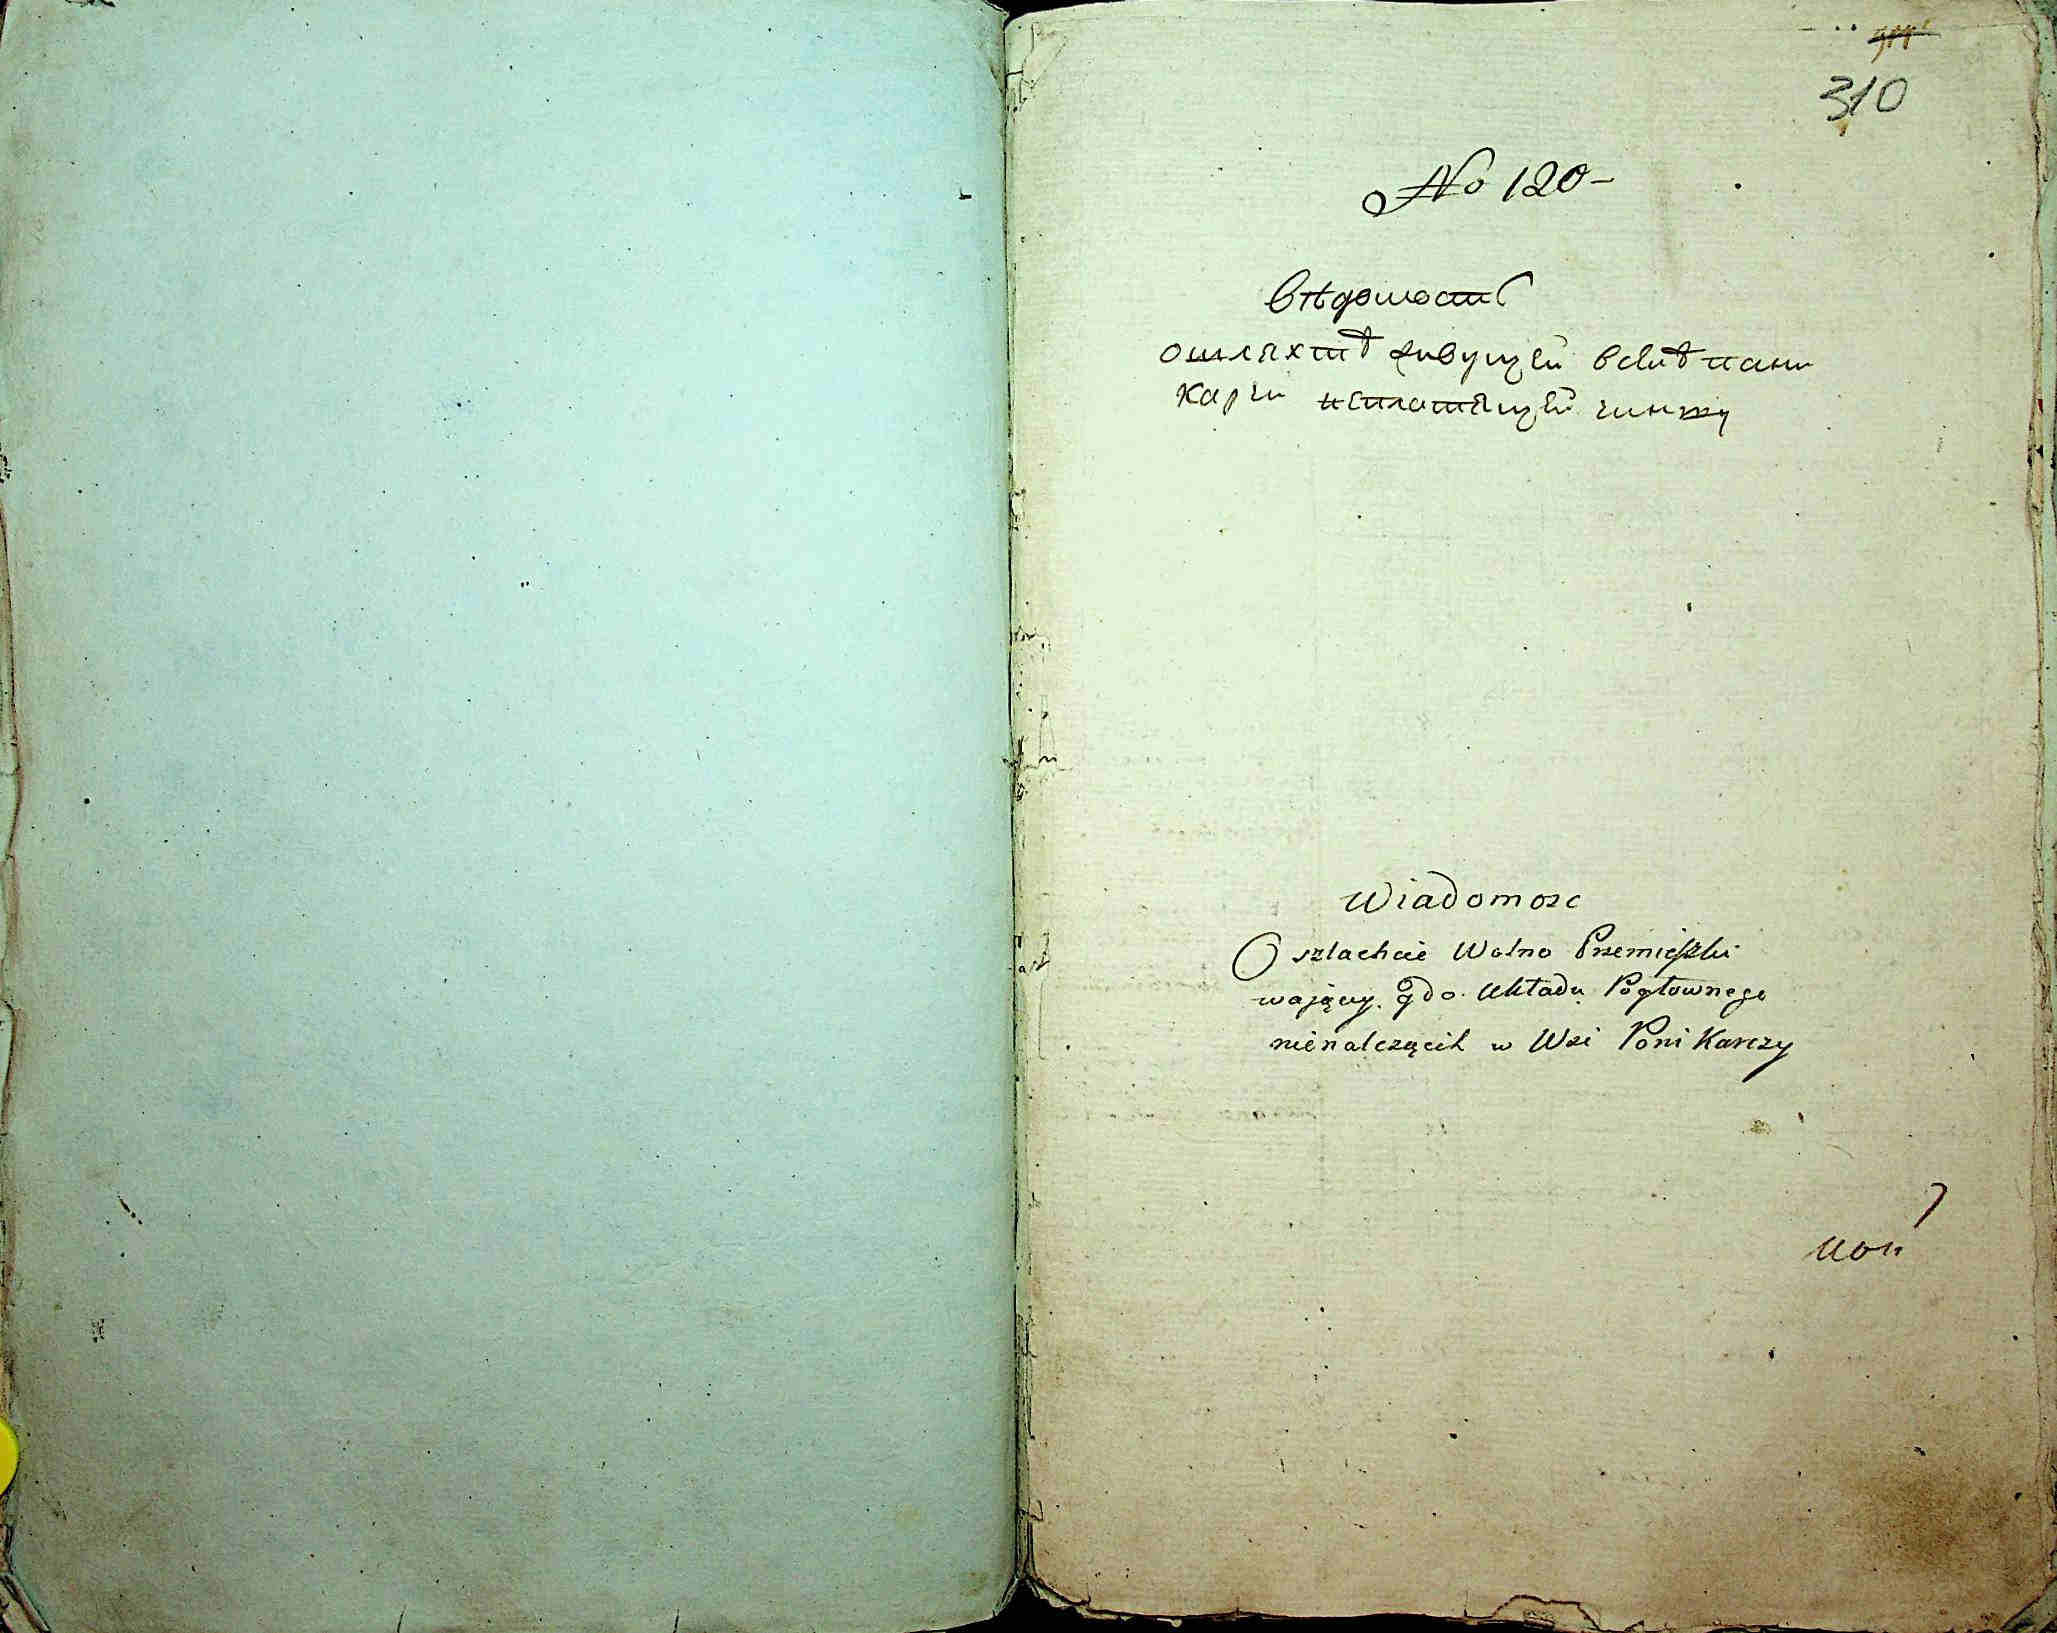 310
No 120-
вѣдомость
ошляхтѣ живущей вселѣ пони
карчи неплатящей чинжу
Wiadomosc
O szlachcie Wolno Przemięszki
wający. q do. Układu Pogłownego
nienalezącih w Wsi Poni Karczy